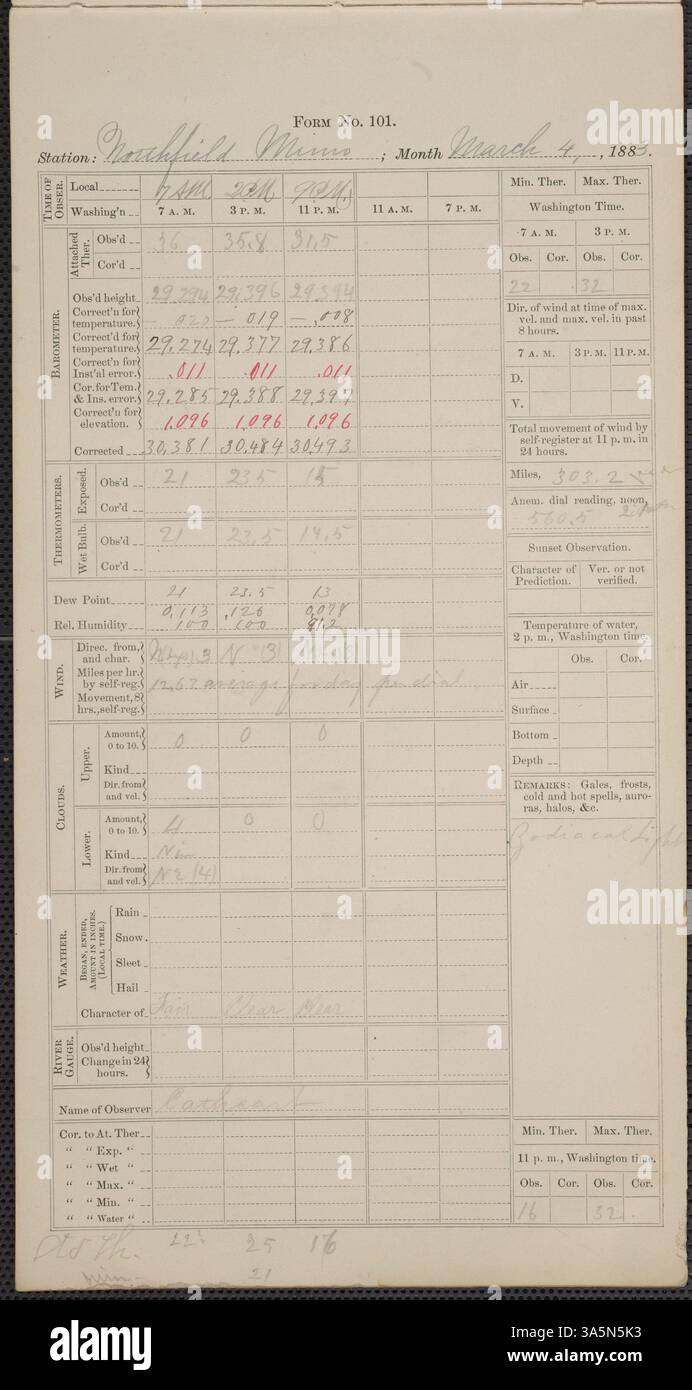 FORM No. 101.
Station: Northfield Minn ; Month March 4, , 1883.
TIME OF OBSER.
Local 7 AM 2 PM 9 PM
Washing'n 7 A. M. 3 P. M. 11 P. M. 11 A. M. 7 P. M.
BAROMETER.
Attached Ther.
Obs'd 36 35.8 31.5
Cor'd
Obs'd height 29.294 29.396 29.394
Correct'n for temperature. .020 — .019 — .008
Correct'd for temperature. 29.274 29.377 29.386
Correct'n for Inst'al error. .011 .011 .011
Cor. for Tem. & Ins. error. 29.285 29.388 29.397
Correct'n for elevation. 1.096 1.096 1.096
Corrected 30.381 30.484 30.493
THERMOMETERS.
Exposed.
Obs'd 21 23.5 15
Cor'd
Wet Bulb.
Obs'd 21 23.5 14.5
Cor'd
Dew Point 21 23.5 13
0.113 .126 0.078
Rel. Humidity 100 100 91.2
WIND.
Direc. from, and char. N (3)
Miles per hr. by self-reg. 12.63 average for day per dial
Movement, 8 hrs., self-reg.
CLOUDS.
Upper.
Amount, 0 to 10. 0 0 0
Kind
Dir. from and vel.
Lower.
Amount, 0 to 10. 4 0 0
Kind Nim
Dir. from and vel. NE (4)
WEATHER.
BEGAN, ENDED, AMOUNT IN INCHES. (LOCAL TIME.)
Rain
Snow
Sleet
Hail
Character of Fair Clear Clear
RIVER GAUGE.
Obs'd height
Change in 24 hours.
Name of Observer Cathcart
Cor. to At. Ther
" " Exp. "
" " Wet "
" " Max. "
" " Min. "
" " Water "
Min. Ther. Max. Ther.
Washington Time.
7 A. M. 3 P. M.
Obs. Cor. Obs. Cor.
22 32
Dir. of wind at time of max. vel. and max. vel. in past 8 hours.
7 A. M. 3 P. M. 11 P. M.
D.
V.
Total movement of wind by self-register at 11 p. m. in 24 hours.
Miles, 303.2
Anem. dial reading, noon,
560.5
Sunset Observation.
Character of Prediction. Ver. or not verified.
Temperature of water, 2 p. m., Washington time.
Obs. Cor.
Air
Surface
Bottom
Depth
REMARKS: Gales, frosts, cold and hot spells, auroras, halos, &c.
Zodiacal Light
Min. Ther. Max. Ther.
11 p. m., Washington time.
Obs. Cor. Obs. Cor.
16 32
25 16
21
alamy
Image ID: 3A5N5K3
www.alamy.com